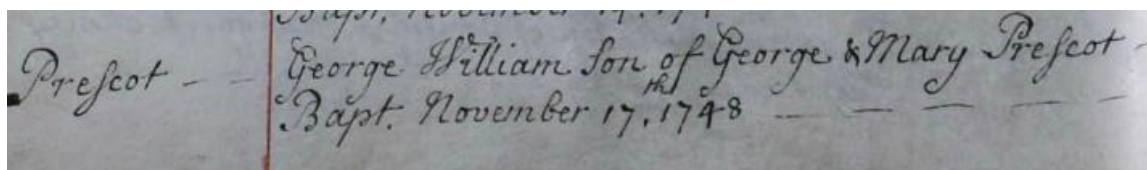 Bapt. November
Preſcot - - George William ſon of George & Mary Preſcot -
Bapt. November 17th. 1748 - - - - -